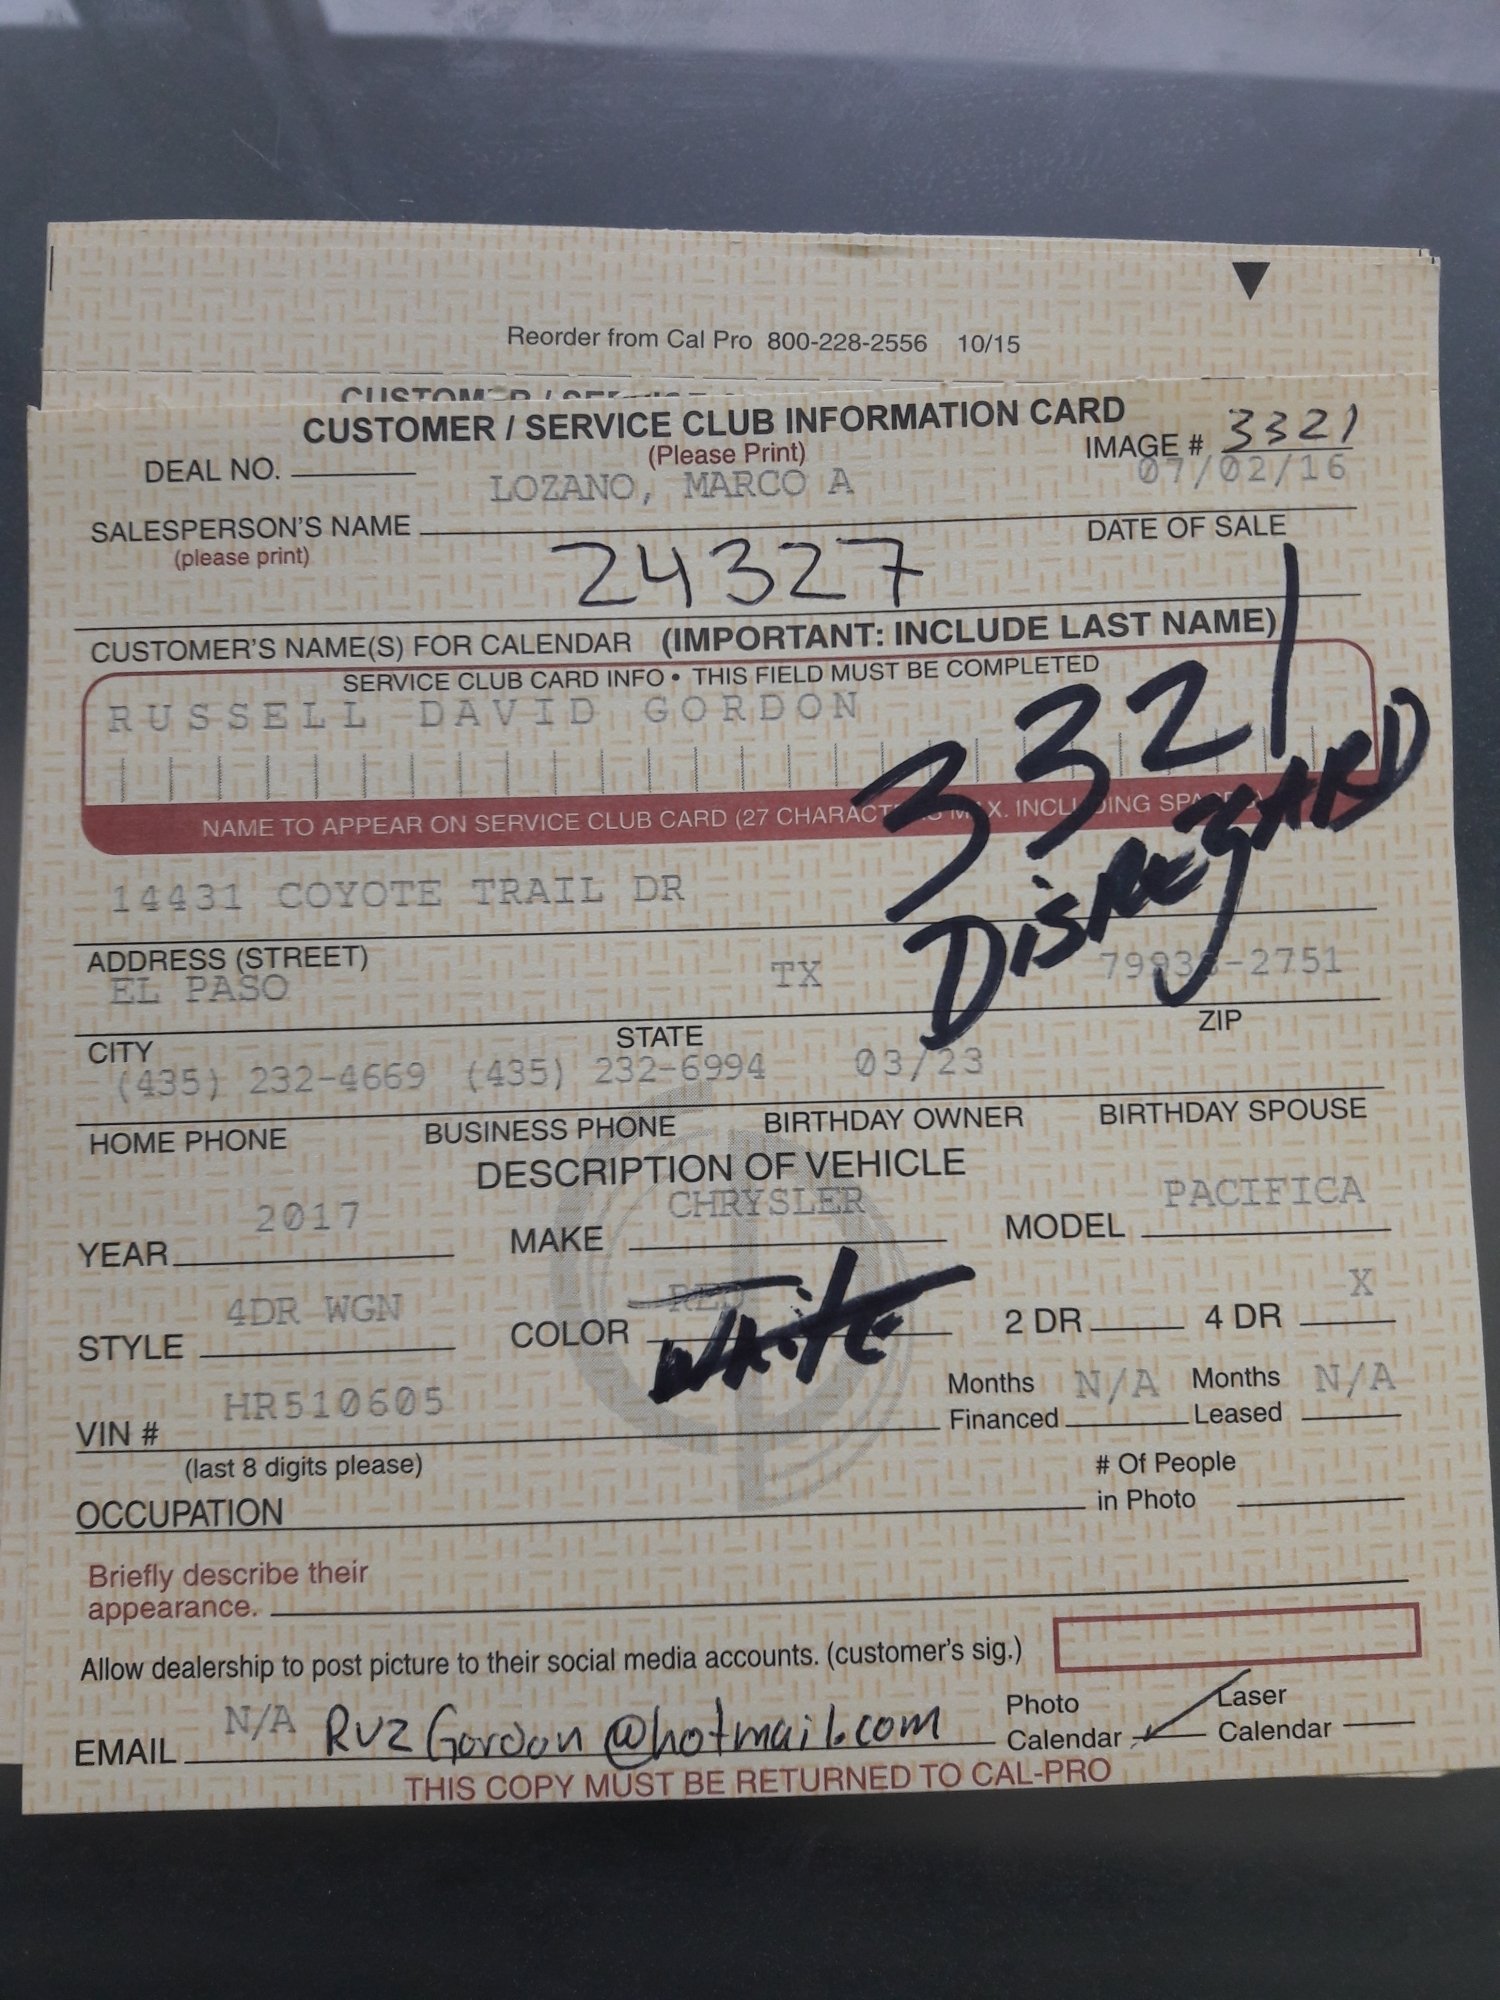 Reorder from Cal Pro 800-228-2556 10/15
CUSTOMER / SERVICE CLUB INFORMATION CARD
(Please Print)
DEAL NO.
IMAGE # 3321
LOZANO, MARCO A
07/02/16
SALESPERSON'S NAME
(please print)
DATE OF SALE
24327
CUSTOMER'S NAME(S) FOR CALENDAR (IMPORTANT: INCLUDE LAST NAME)
SERVICE CLUB CARD INFO • THIS FIELD MUST BE COMPLETED
RUSSELL DAVID GORDON
3321
DISREGARD
NAME TO APPEAR ON SERVICE CLUB CARD (27 CHARACTERS MAX. INCLUDING SPACES)
14431 COYOTE TRAIL DR
ADDRESS (STREET)
EL PASO TX -2751
CITY STATE ZIP
(435) 232-4669 (435) 232-6994 03/23
HOME PHONE BUSINESS PHONE BIRTHDAY OWNER BIRTHDAY SPOUSE
DESCRIPTION OF VEHICLE
YEAR 2017 MAKE CHRYSLER MODEL PACIFICA
STYLE 4DR WGN COLOR RED 2 DR 4 DR X
White
VIN # HR510605
(last 8 digits please)
Months Financed N/A Months Leased N/A
OCCUPATION
# Of People in Photo
Briefly describe their
appearance.
Allow dealership to post picture to their social media accounts. (customer's sig.)
EMAIL N/A RUZGordon@hotmail.com
Photo Calendar Laser Calendar
THIS COPY MUST BE RETURNED TO CAL-PRO